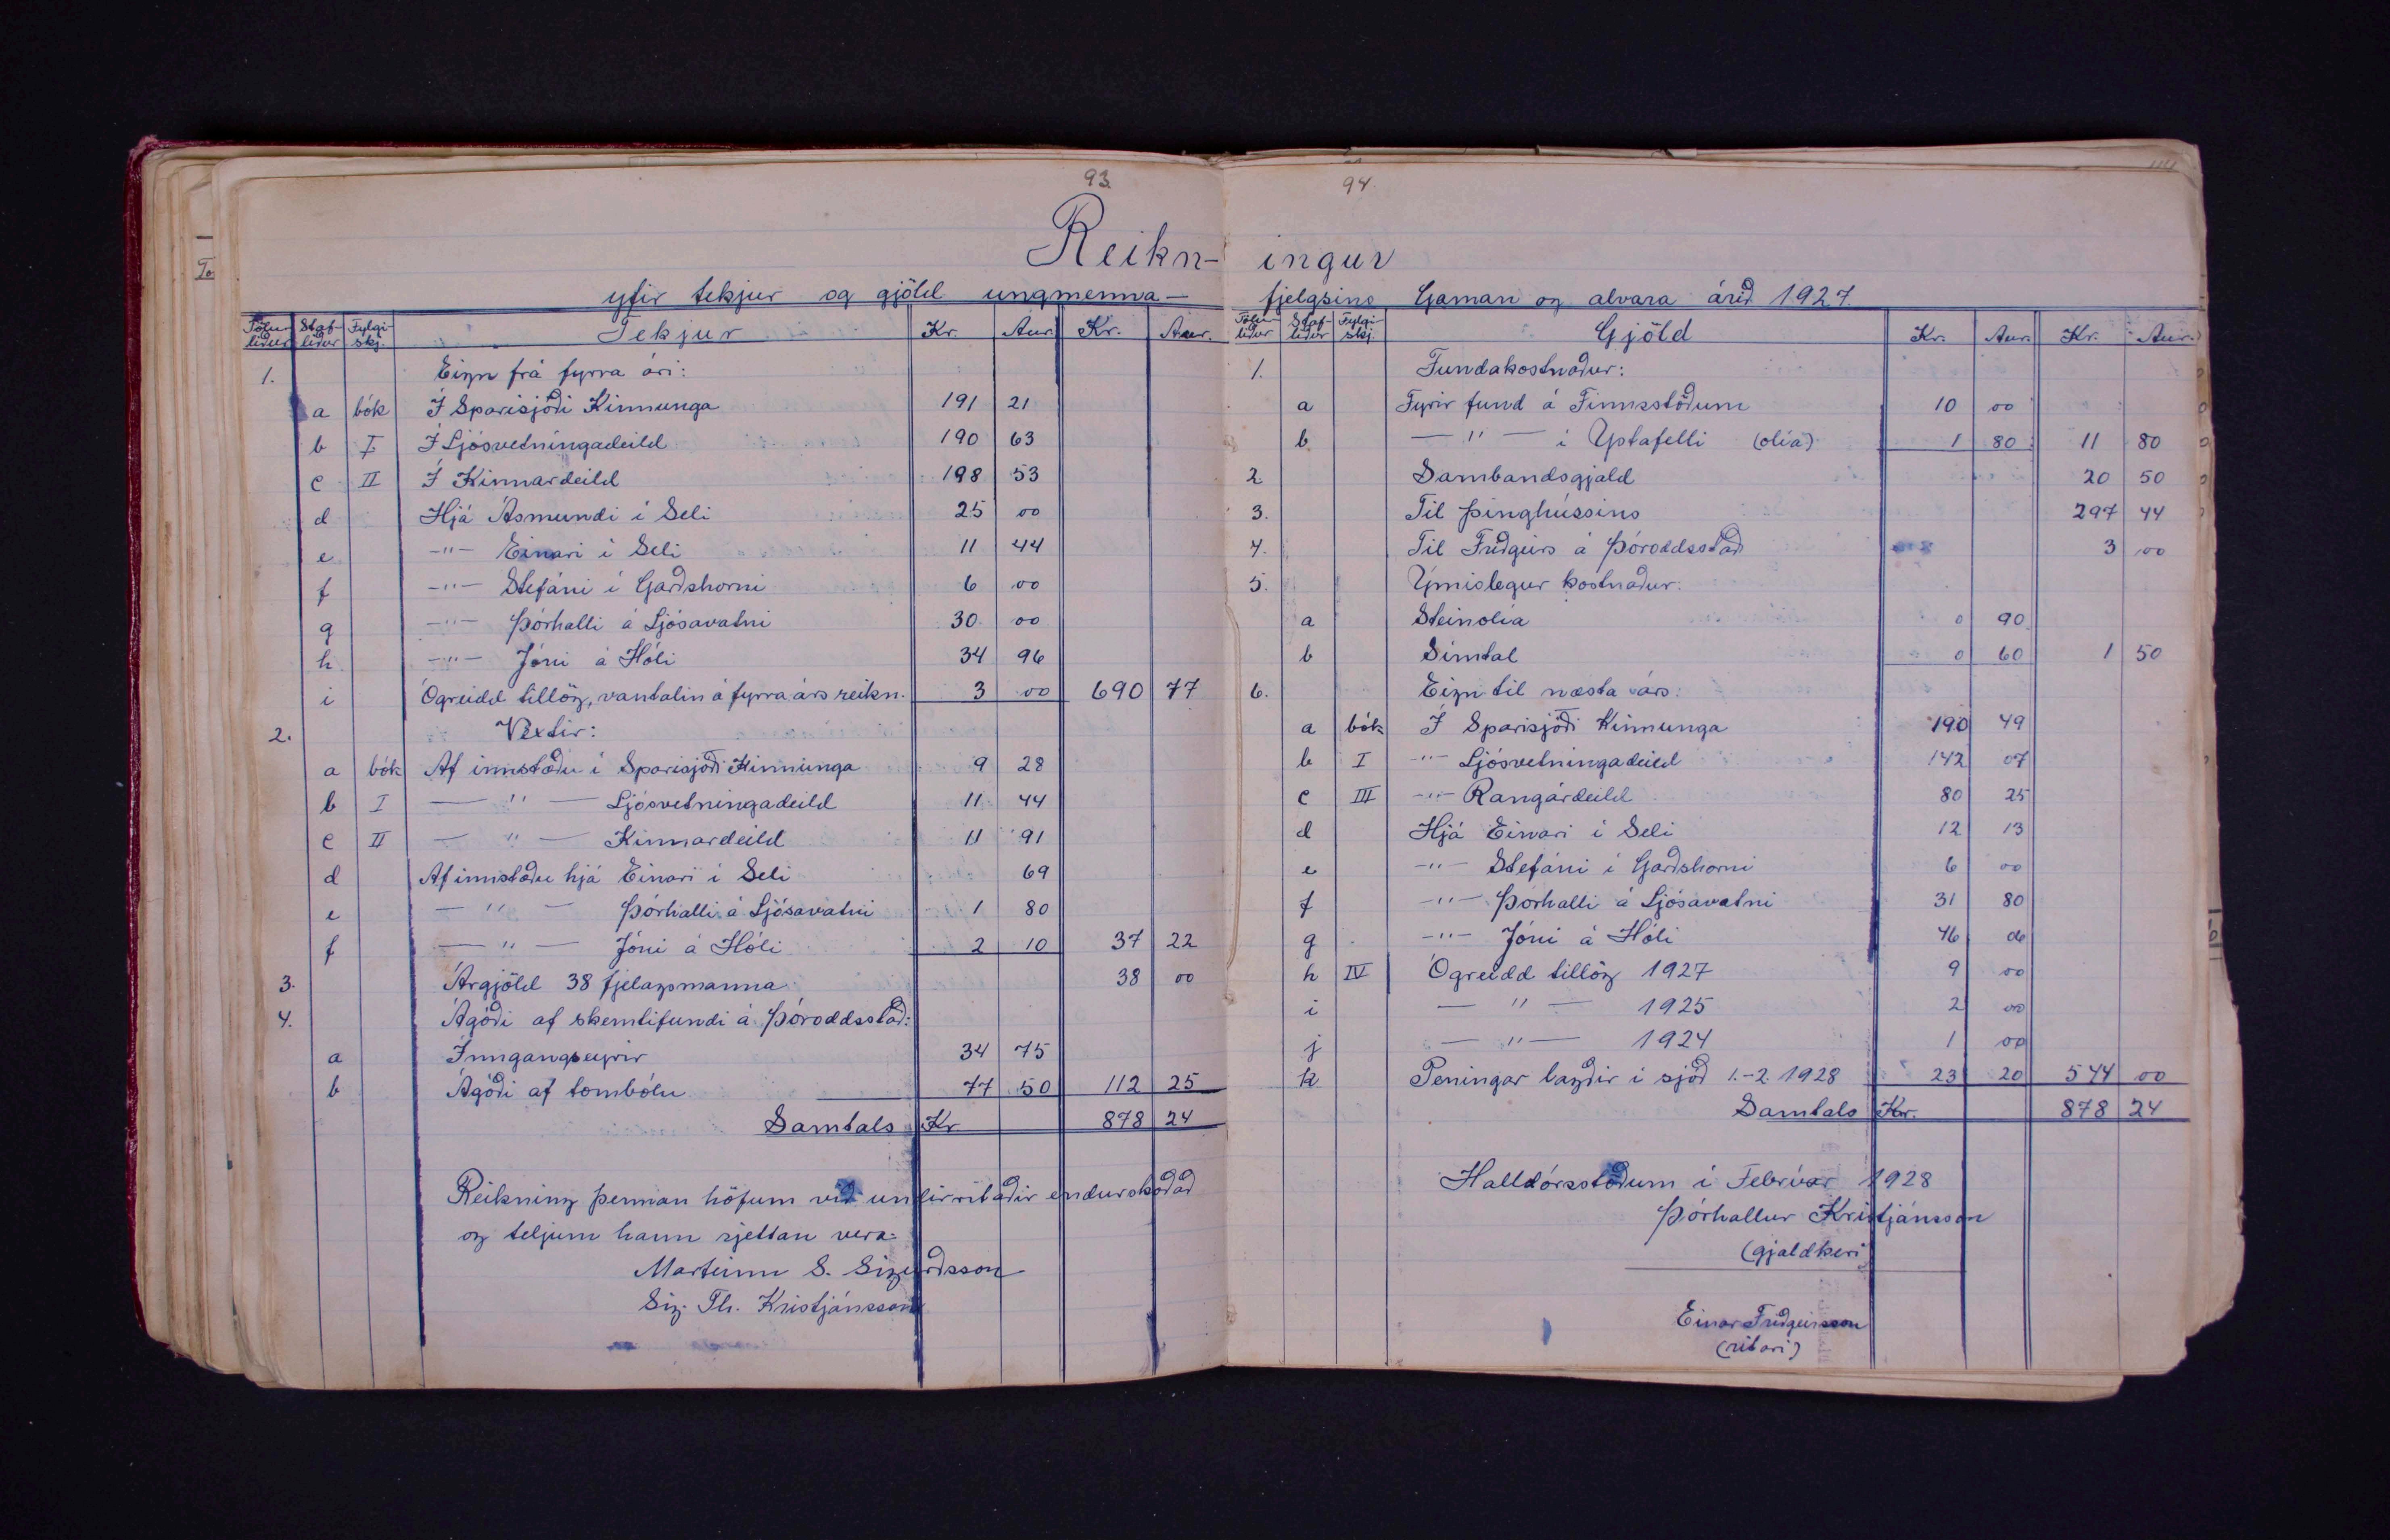 93.
Reikn-
yfir tekjur og gjöld ungmenna-
Töluliður Stafliður Fylgiskj. Tekjur Kr. Aur. Kr. Aur.
1. Eign frá fyrra ári:
a bók Í Sparisjóði Kinnunga 191 21
b I Í Ljósvetningadeild 190 63
c II Í Kinnardeild 198 53
d Hjá Ásmundi í Seli 25 00
e -"- Einari í Seli 11 44
f -"- Stefáni í Garðshorni 6 00
g -"- Þórhalli á Ljósavatni 30 00
h -"- Jóni á Hóli 34 96
i Ógreidd tillög, vantalin á fyrra árs reikn. 3 00 690 77
2. Vextir:
a bók Af innstæðu í Sparisjóði Kinnunga 9 28
b I — " — Ljósvetningadeild 11 44
c II — " — Kinnardeild 11 91
d Af innstæðu hjá Einari í Seli 69
e — " — Þórhalli á Ljósavatni 1 80
f — " — Jóni á Hóli 2 10 37 22
3. Árgjöld 38 fjelagsmanna 38 00
4. Ágóði af skemtifundi á Þóroddsstað:
a Inngangseyrir 34 75
b Ágóði af tombólu 77 50 112 25
Samtals Kr 878 24
Reikning þennan höfum við undirritaðir endurskoðað
og teljum hann rjettan vera.
Marteinn S. Sigurðsson
Sig. Th. Kristjánsson
94.
ingur
fjelgsins Gaman og alvara árið 1927.
Töluliður Stafliður Fylgiskj. Gjöld Kr. Aur. Kr. Aur.
1. Fundakostnaður:
a Fyrir fund á Finnsstöðum 10 00
b — " — í Ystafelli (olía) 1 80 11 80
2 Sambandsgjald 20 50
3. Til þinghússins 297 44
4. Til Friðgeirs á Þóroddsstað 3 00
5. Ýmislegur kostnaður:
a Steinolía 0 90
b Símtal 0 60 1 50
6. Eign til næsta árs:
a bók Í Sparisjóði Kinnunga 190 49
b I -"- Ljósvetningadeild 142 07
c III -"- Rangárdeild 80 25
d Hjá Einari í Seli 12 13
e -"- Stefáni í Garðshorni 6 00
f -"- Þórhalli á Ljósavatni 31 80
g -"- Jóni á Hóli 46 06
h IV Ógreidd tillög 1927 9 00
i — " — 1925 2 00
j — " — 1924 1 00
k Peningar lagðir í sjóð 1.-2. 1928 23 20 544 00
Samtals Kr. 878 24
Halldórsstöðum í Febrúar 1928
Þórhallur Kristjánsson
(gjaldkeri)
Einar Friðgeirsson
(ritari)